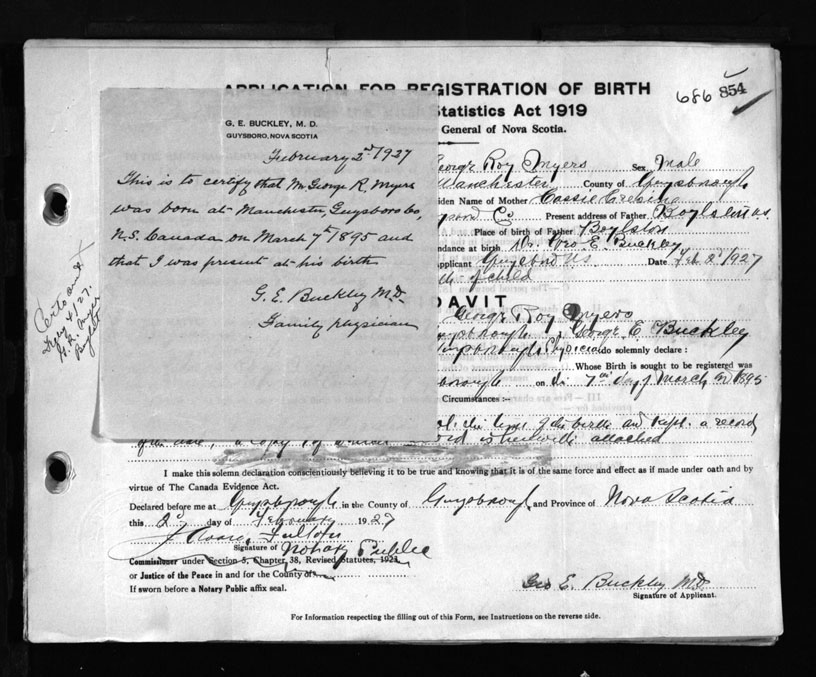 APPLICATION FOR REGISTRATION OF BIRTH
686 854
Statistics Act 1919
General of Nova Scotia.
G. E. BUCKLEY, M. D.
GUYSBORO, NOVA SCOTIA
February 2nd 1927
This is to certify that Mr. George R. Myers
was born at Manchester, Guysboro Co,
N.S. Canada on March 7th 1895 and
that I was present at his birth
G. E. Buckley M.D.
Family physician
George Roy Myers Sex Male
Manchester County of Guysborough
iden Name of Mother Cassie
Present address of Father Boylston N.S.
Place of birth of Father Boylston
ndance at birth Dr. Geo E. Buckley
pplicant Guysboro N.S. Date Feb 2d 1927
of child
DAVIT
George Roy Myers
George E. Buckley
Physician do solemnly declare :
Whose Birth is sought to be registered was
on the 7th day of March 1895
Circumstances :-
the time of the birth and kept a record
of the date, a copy of which is herewith attached
I make this solemn declaration conscientiously believing it to be true and knowing that it is of the same force and effect as if made under oath and by
virtue of The Canada Evidence Act.
Declared before me at Guysborough in the County of Guysborough and Province of Nova Scotia
this 2d day of February 1927
Fulton
Signature of Notary Public
Commissioner under Section 5, Chapter 38, Revised Statutes, 1923
or Justice of the Peace in and for the County of
If sworn before a Notary Public affix seal.
Geo E. Buckley M.D.
Signature of Applicant.
For Information respecting the filling out of this Form, see Instructions on the reverse side.